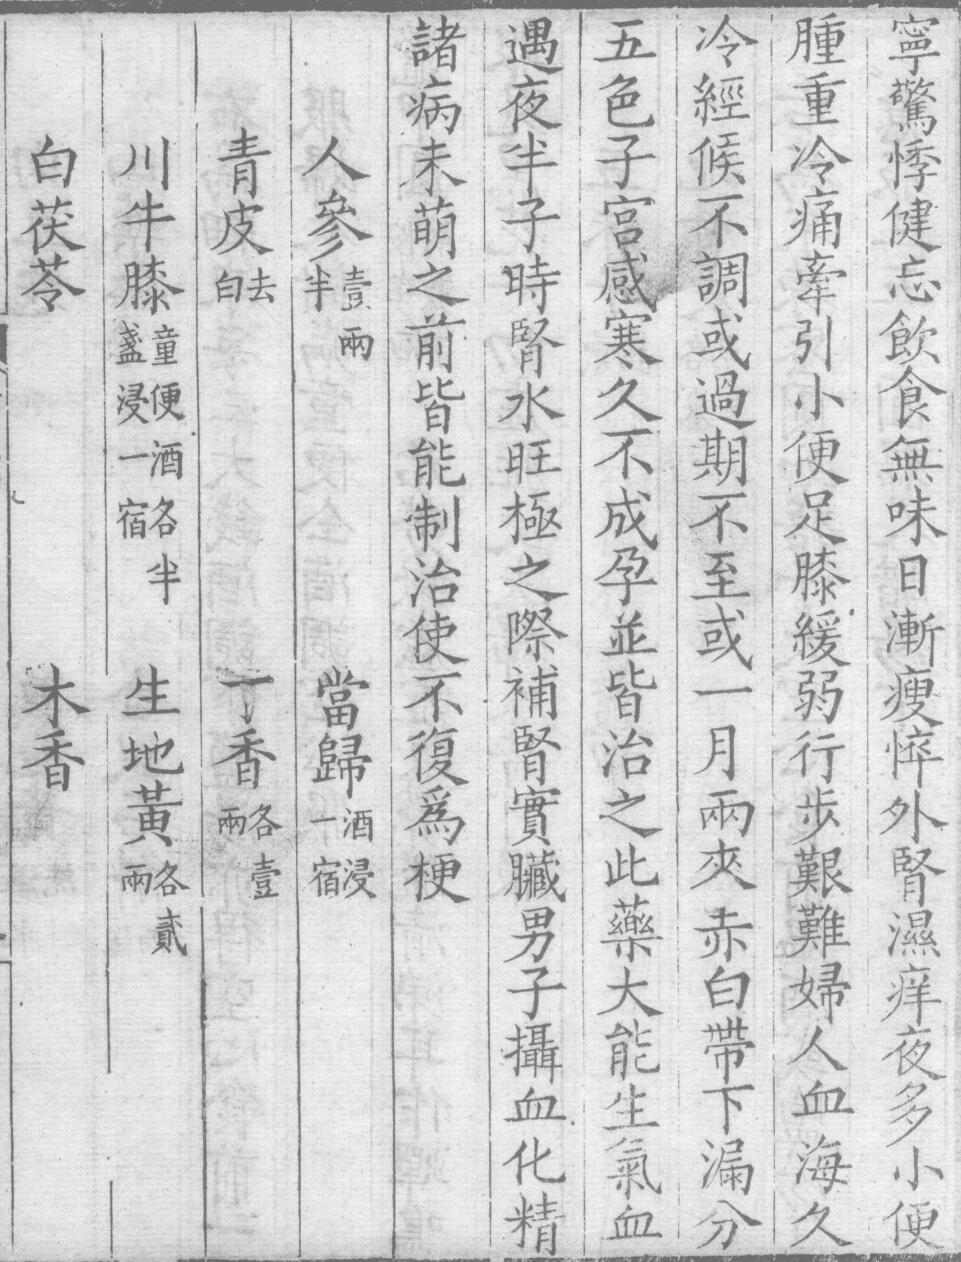 寧驚悸健忘飲食無味日漸瘦悴外腎濕痒夜多小便
腫重冷痛牽引小便足膝緩弱行步艱難婦人血海久
冷經候不調或過期不至或一月兩來赤白帶下漏分
五色子宮感寒久不成孕並皆治之此藥大能生氣血
遇夜半子時腎水旺極之際補腎實臟男子攝血化精
諸病未萌之前皆能制治使不復爲梗
人參壹兩半 當歸酒浸一宿
青皮去白 丁香各壹兩
川牛膝童便酒各半盞浸一宿 生地黃各貳兩
白茯苓 木香